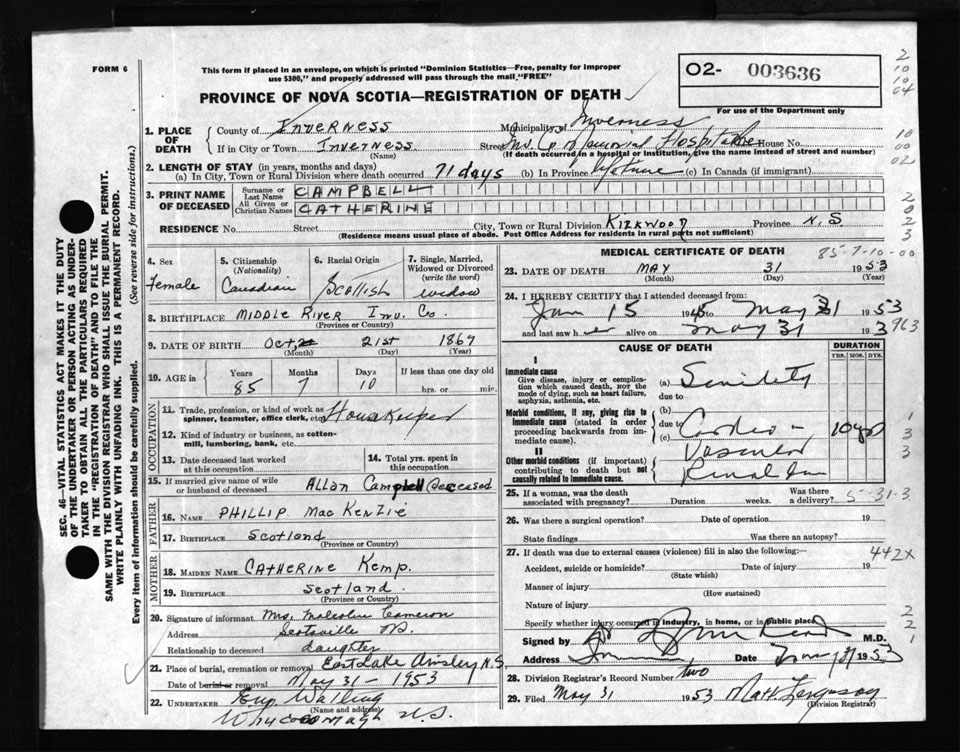 FORM 6
This form if placed in an envelope, on which is printed "Dominion Statistics—Free, penalty for improper
use $300," and properly addressed will pass through the mail "FREE"
O2- 003636
For use of the Department only
PROVINCE OF NOVA SCOTIA—REGISTRATION OF DEATH
2
10
10
04
10
00
02
2
0
2
3
1. PLACE OF DEATH
County of INVERNESS Municipality of Inverness
If in City or Town INVERNESS (Name) Street Inv. Co. Memorial Hospital House No.
(If death occurred in a hospital or institution, give the name instead of street and number)
2. LENGTH OF STAY (in years, months and days)
(a) In City, Town or Rural Division where death occurred 71 days (b) In Province Lifetime (c) In Canada (if immigrant)
3. PRINT NAME OF DECEASED
Surname or Last Name CAMPBELL
All Given or Christian Names CATHERINE
RESIDENCE No. Street City, Town or Rural Division KIRKWOOD Province N.S.
(Residence means usual place of abode. Post Office Address for residents in rural parts not sufficient)
4. Sex
Female
5. Citizenship (Nationality)
Canadian
6. Racial Origin
Scottish
7. Single, Married, Widowed or Divorced (write the word)
widow
8. BIRTHPLACE MIDDLE RIVER Inv. Co.
(Province or Country)
9. DATE OF BIRTH Oct. 21st 1867
(Month) (Day) (Year)
10. AGE in Years Months Days If less than one day old
85 7 10 hrs. or min.
OCCUPATION
11. Trade, profession, or kind of work as spinner, teamster, office clerk, etc. Housekeeper
12. Kind of industry or business, as cotton-mill, lumbering, bank, etc.
13. Date deceased last worked at this occupation
14. Total yrs. spent in this occupation
15. If married give name of wife or husband of deceased Allan Campbell deceased
FATHER
16. NAME PHILLIP MacKenzie
17. BIRTHPLACE Scotland
(Province or Country)
MOTHER
18. MAIDEN NAME CATHERINE Kemp.
19. BIRTHPLACE Scotland.
(Province or Country)
20. Signature of informant Mrs. Malcolm Cameron
Address Scotsville NS.
Relationship to deceased daughter
21. Place of burial, cremation or removal East Lake Ainsley N.S
Date of burial or removal May 31 - 1953
22. UNDERTAKER
(Name and address)
Whycocomagh N.S.
MEDICAL CERTIFICATE OF DEATH
85-7-10-00
23. DATE OF DEATH MAY 31 1953
(Month) (Day) (Year)
24. I HEREBY CERTIFY that I attended deceased from:
Jan 15 to May 31 1953
and last saw her alive on May 31 193
963
CAUSE OF DEATH
DURATION
YRS. MOS. DYS.
I
Immediate cause
Give disease, injury or complication which caused death, NOT the mode of dying, such as heart failure, asphyxia, asthenia, etc.
(a) Senility
due to
Morbid conditions, if any, giving rise to immediate cause (stated in order proceeding backwards from immediate cause).
(b)
due to
(c) Cardio - 10 yrs
Vascular
Renal
II
Other morbid conditions (if important) contributing to death but not causally related to immediate cause.
1
3
3
25. If a woman, was the death associated with pregnancy? Duration weeks. Was there a delivery?
5-31-3
26. Was there a surgical operation? Date of operation 19
State findings Was there an autopsy?
27. If death was due to external causes (violence) fill in also the following:—
442X
Accident, suicide or homicide? Date of injury 19
(State which)
Manner of injury
(How sustained)
Nature of injury
Specify whether injury occurred in industry, in home, or in public place
2
2
1
Signed by M.D.
Address Date May 31 1953
28. Division Registrar's Record Number two
29. Filed May 31 1953 Matt. Ferguson
(Division Registrar)
SEC. 46—VITAL STATISTICS ACT MAKES IT THE DUTY
OF THE UNDERTAKER OR PERSON ACTING AS UNDER-
TAKER TO OBTAIN ALL THE PARTICULARS REQUIRED
IN THE "REGISTRATION OF DEATH" AND TO FILE THE
SAME WITH THE DIVISION REGISTRAR WHO SHALL ISSUE THE BURIAL PERMIT.
WRITE PLAINLY WITH UNFADING INK. THIS IS A PERMANENT RECORD.
Every item of information should be carefully supplied. (See reverse side for instructions.)